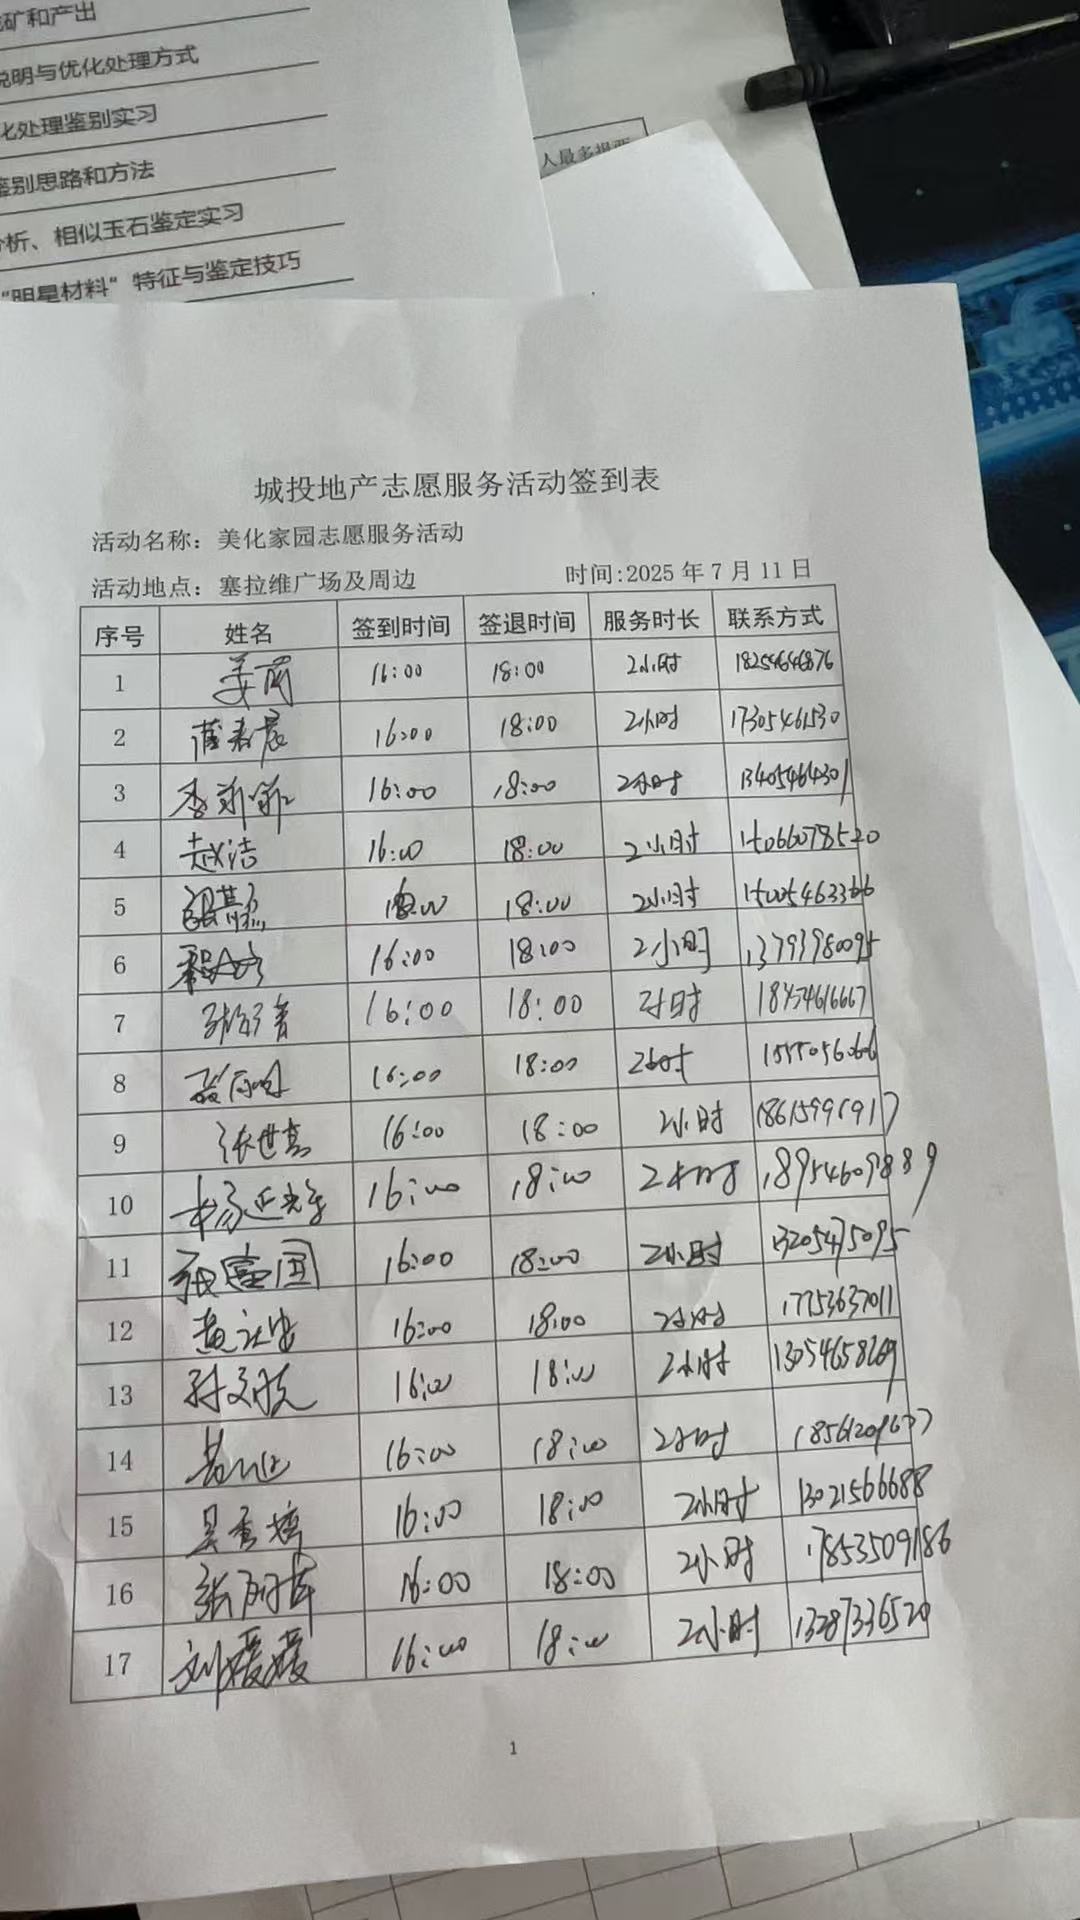 矿和产出
说明与优化处理方式
化处理鉴别实习
鉴别思路和方法
析、相似玉石鉴定实习
"明星材料" 特征与鉴定技巧
人最多报两
城投地产志愿服务活动签到表
活动名称：美化家园志愿服务活动
活动地点：塞拉维广场及周边 时间:2025 年 7 月 11 日
序号 姓名 签到时间 签退时间 服务时长 联系方式
1 姜茵 16:00 18:00 2小时 18254646876
2 18:00 2小时 17305461530
3 16:00 18:00 2小时 13405464301
4 赵洁 16:00 18:00 2小时 15066078520
5 18:00 2小时 15005463366
6 16:00 18:00 2小时 13793980095
7 16:00 18:00 2小时 18454616667
8 16:00 18:00 2小时
9 张世嘉 16:00 18:00 2小时 18615991917
10 杨延峰 16:00 18:00 2小时 18954609889
11 张富国 16:00 18:00 2小时 13205475095
12 16:00 18:00 2小时 17753637011
13 16:00 18:00 2小时 13054658269
14 16:00 18:00 2小时
15 吴秀婷 16:00 18:00 2小时 13021566688
16 张丽萍 16:00 18:00 2小时 17853509186
17 刘媛媛 16:00 18:00 2小时 13287336520
1